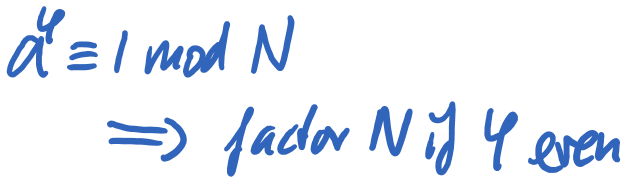 a^φ ≡ 1 mod N
⇒ factor N if φ even